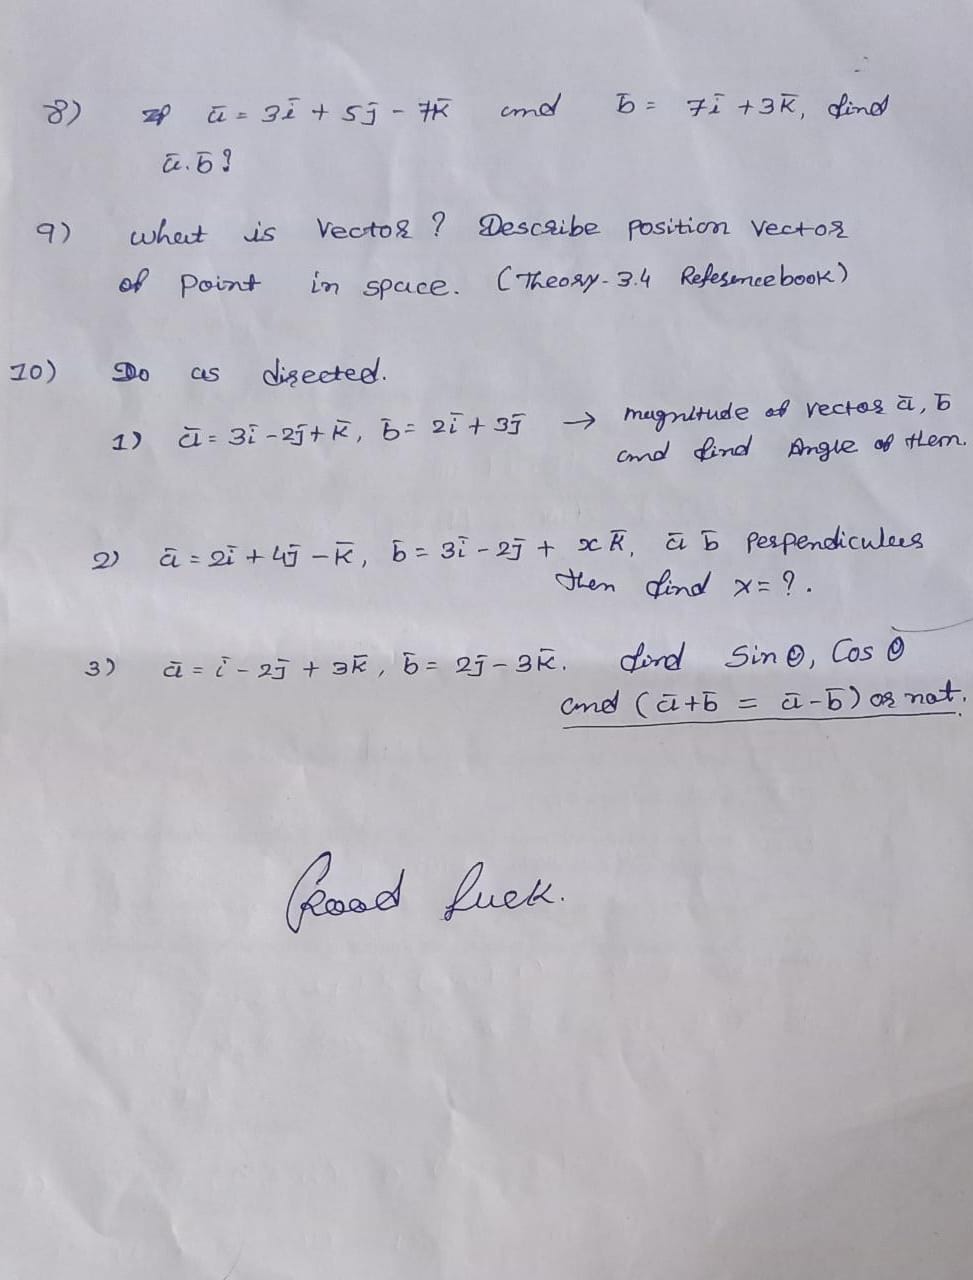 8) If ā = 3ī + 5j̄ - 7k̄ and b̄ = 7ī + 3k̄, find
ā.b̄?
9) what is Vector? Describe position vector
of point in space. (Theory-3.4 Reference book)
10) Do as directed.
1) ā = 3ī - 2j̄ + k̄, b̄ = 2ī + 3j̄ → magnitude of vector ā, b̄
and find Angle of them.
2) ā = 2ī + 4j̄ - k̄, b̄ = 3ī - 2j̄ + xk̄, ā b̄ perpendiculers
then find x = ?.
3) ā = ī - 2j̄ + 3k̄, b̄ = 2j̄ - 3k̄. find Sin θ, Cos θ
and (ā+b̄ = ā-b̄) or not.
Good luck.